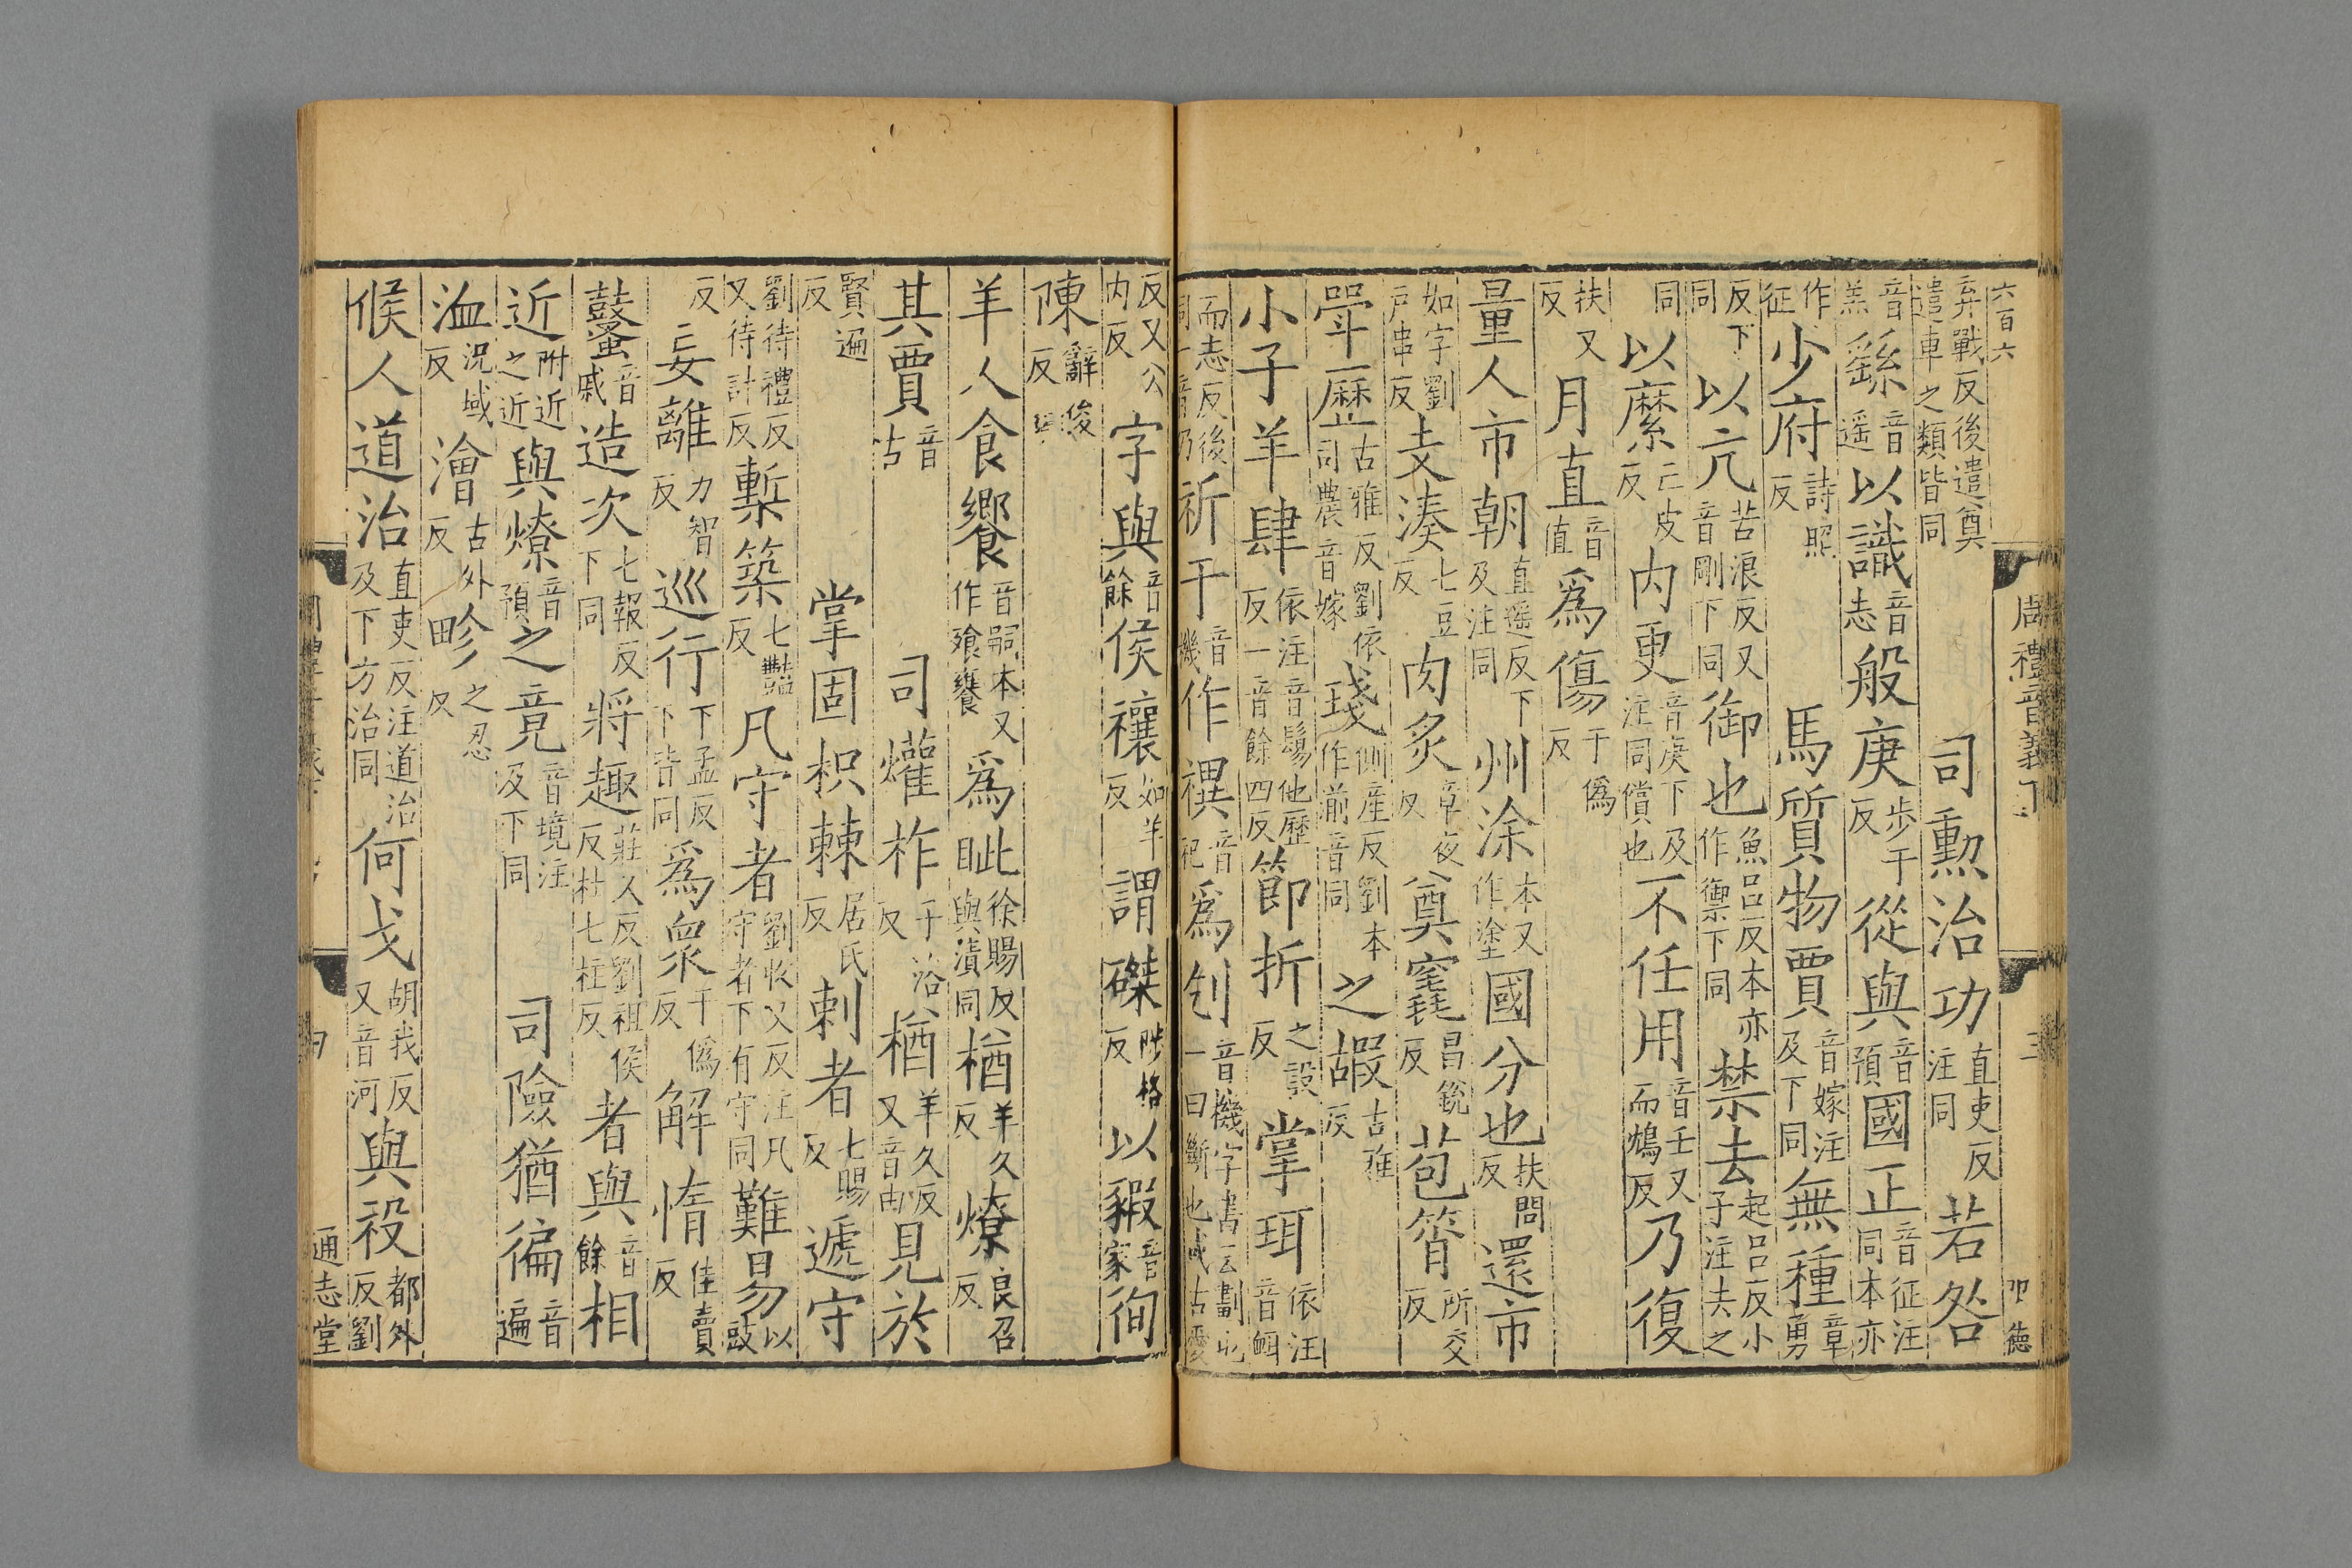 六百六 周禮音義下 三 卭德
弃戰反後遣奠遣車之類皆同 司勲治功直吏反注同若咎
音羔繇音遥以識音志般庚步干反從與音預國正音征注同本亦
作征少府詩照反 馬質物賈音嫁注及下同無種章勇
反下同以亢苦浪反又音剛下同御也魚呂反本亦作禦下同禁去起呂反小子注去之
同以縻亡皮反内更音庚下及注同償也不任用音壬又而鴆反乃復
扶又反月直音值爲傷于僞反
量人市朝直遥反下及注同州涂本又作塗國分也扶問反還市
如字劉戸串反攴湊七豆反肉炙章夜反奠竁昌銳反苞筲所交反
斝歷古雅反劉依司農音嫁琖側產反劉本作湔音同之嘏古雅反
小子羊肆依注音鬄他歷反一音餘四反節折之設反掌珥依注音衈
而志反後同一音乃祈干音機作禩音祀爲刉音機字書云劃也一曰斷也
反又公内反字與音餘侯禳如羊反謂磔陟格反以豭音家徇
陳辭俊反
羊人食饗音嗣本又作飱饔爲眦徐賜反與漬同楢羊久反燎良召反
其賈音古 司爟柞子洛反楢羊久反又音由見於
賢遍反 掌固枳棘居氏反刺者七賜反遞守
劉待禮反又待計反塹築七豔反凡守者劉收又反注凡守者下有守同難易以豉
反亡妄離力智反巡行下孟反下皆同爲衆于僞反解惰佳賣反
鼜音戚造次七報反下同將趣莊久反劉祖侯反杜七柱反者與音餘相
近附近之近與燎音預之竟音境注及下同 司險猶徧音遍
洫況域反澮古外反畛之忍反
候人道治直吏反注道治及下方治同何戈胡我反又音河與祋都外反劉
通志堂